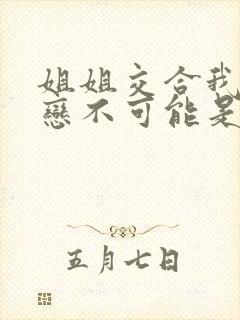 姐姐交合我
戀不可能是
五月七日